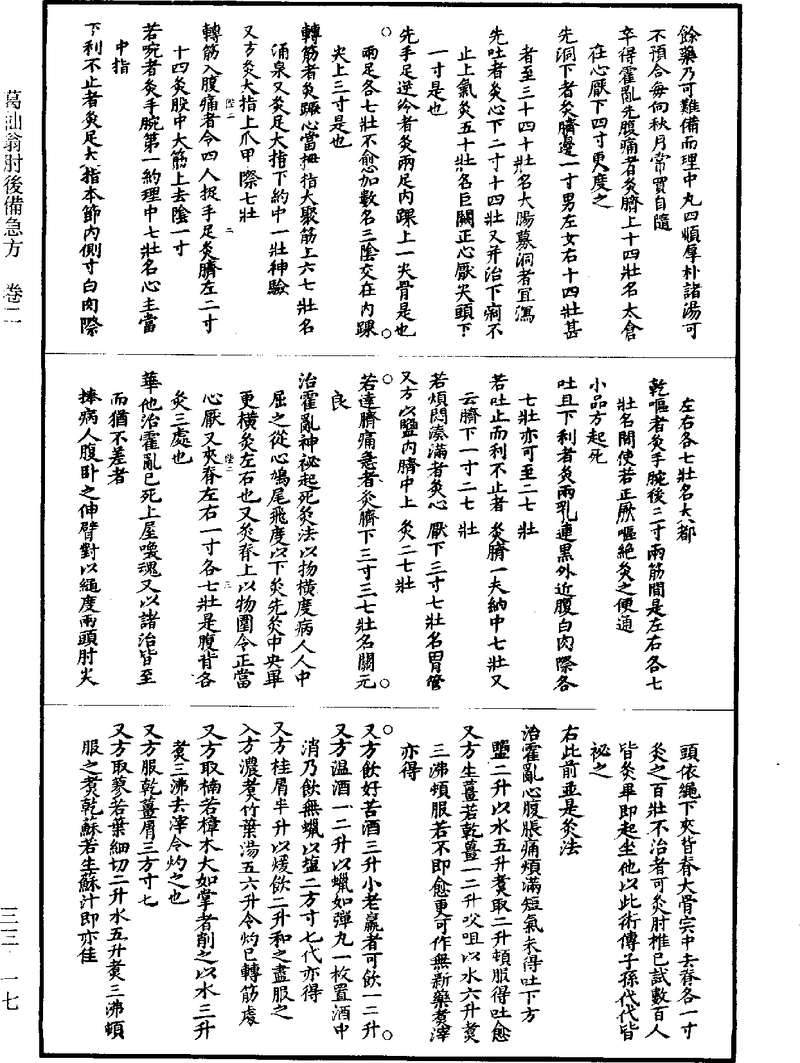 餘藥乃可難備而理中丸四順厚朴諸湯可
不預合每向秋月常買自隨
卒得霍亂先腹痛者灸臍上十四壯名太倉
在心厭下四寸更度之
先洞下者灸臍邊一寸男左女右十四壯甚
者至三十四十壯名大腸募洞者宜瀉
先吐者灸心下二寸十四壯又并治下痢不
止上氣灸五十壯名巨闕正心厭尖頭下
一寸是也
先手足逆冷者灸兩足內踝上一尖骨是也
兩足各七壯不愈加數名三陰交在內踝
尖上三寸是也
轉筋者灸蹶心當拇指大聚筋上六七壯名
涌泉又灸足大指下約中一壯神驗
又方灸大指上爪甲際七壯
轉筋入腹痛者令四人捉手足灸臍左二寸
十四灸股中大筋上去陰一寸
若啘者灸手腕第一約理中七壯名心主當
中指
下利不止者灸足大指本節內側寸白肉際
左右各七壯名大都
乾嘔者灸手腕後三寸兩筋間是左右各七
壯名間使若正厥嘔絕灸之便通
小品方起死
吐且下利者灸兩乳連黑外近腹白肉際各
七壯亦可至二七壯
若吐止而利不止者灸臍一夫納中七壯又
云臍下一寸二七壯
若煩悶湊滿者灸心厭下三寸七壯名胃管
又方以鹽內臍中上灸二七壯
若達臍痛急者灸臍下三寸三七壯名關元
良
治霍亂神祕起死灸法以物橫度病人人中
屈之從心鳩尾飛度以下灸先灸中央畢
更橫灸左右也又灸脊上以物圍令正當
心厭又夾脊左右一寸各七壯是腹背各
灸三處也
華他治霍亂已死上屋喚魂又以諸治皆至
而猶不差者
捧病人腹臥之伸臂對以繩度兩頭肘尖
頭依繩下夾背脊大骨宍中去脊各一寸
灸之百壯不治者可灸肘椎已試數百人
皆灸畢即起坐他以此術傳子孫代代皆
祕之
右此前並是灸法
治霍亂心腹脹痛煩滿短氣未得吐下方
鹽二升以水五升煮取二升頓服得吐愈
又方生薑若乾薑一二升㕮咀以水六升煮
三沸頓服若不即愈更可作無新藥煮滓
亦得
又方飲好苦酒三升小老羸者可飲一二升
又方温酒一二升以蠟如彈丸一枚置酒中
消乃飲無蠟以塩二方寸七代亦得
又方桂屑半升以煖飲二升和之盡服之
入方濃煮竹葉湯五六升令灼已轉筋處
又方取楠若樟木大如掌者削之以水三升
煮三沸去滓令灼之也
又方服乾薑屑三方寸七
又方取蓼若葉細切二升水五升煮三沸頓
服之煮乾蘇若生蘇汁即亦佳
葛仙翁肘後備急方 卷二
三三·一七